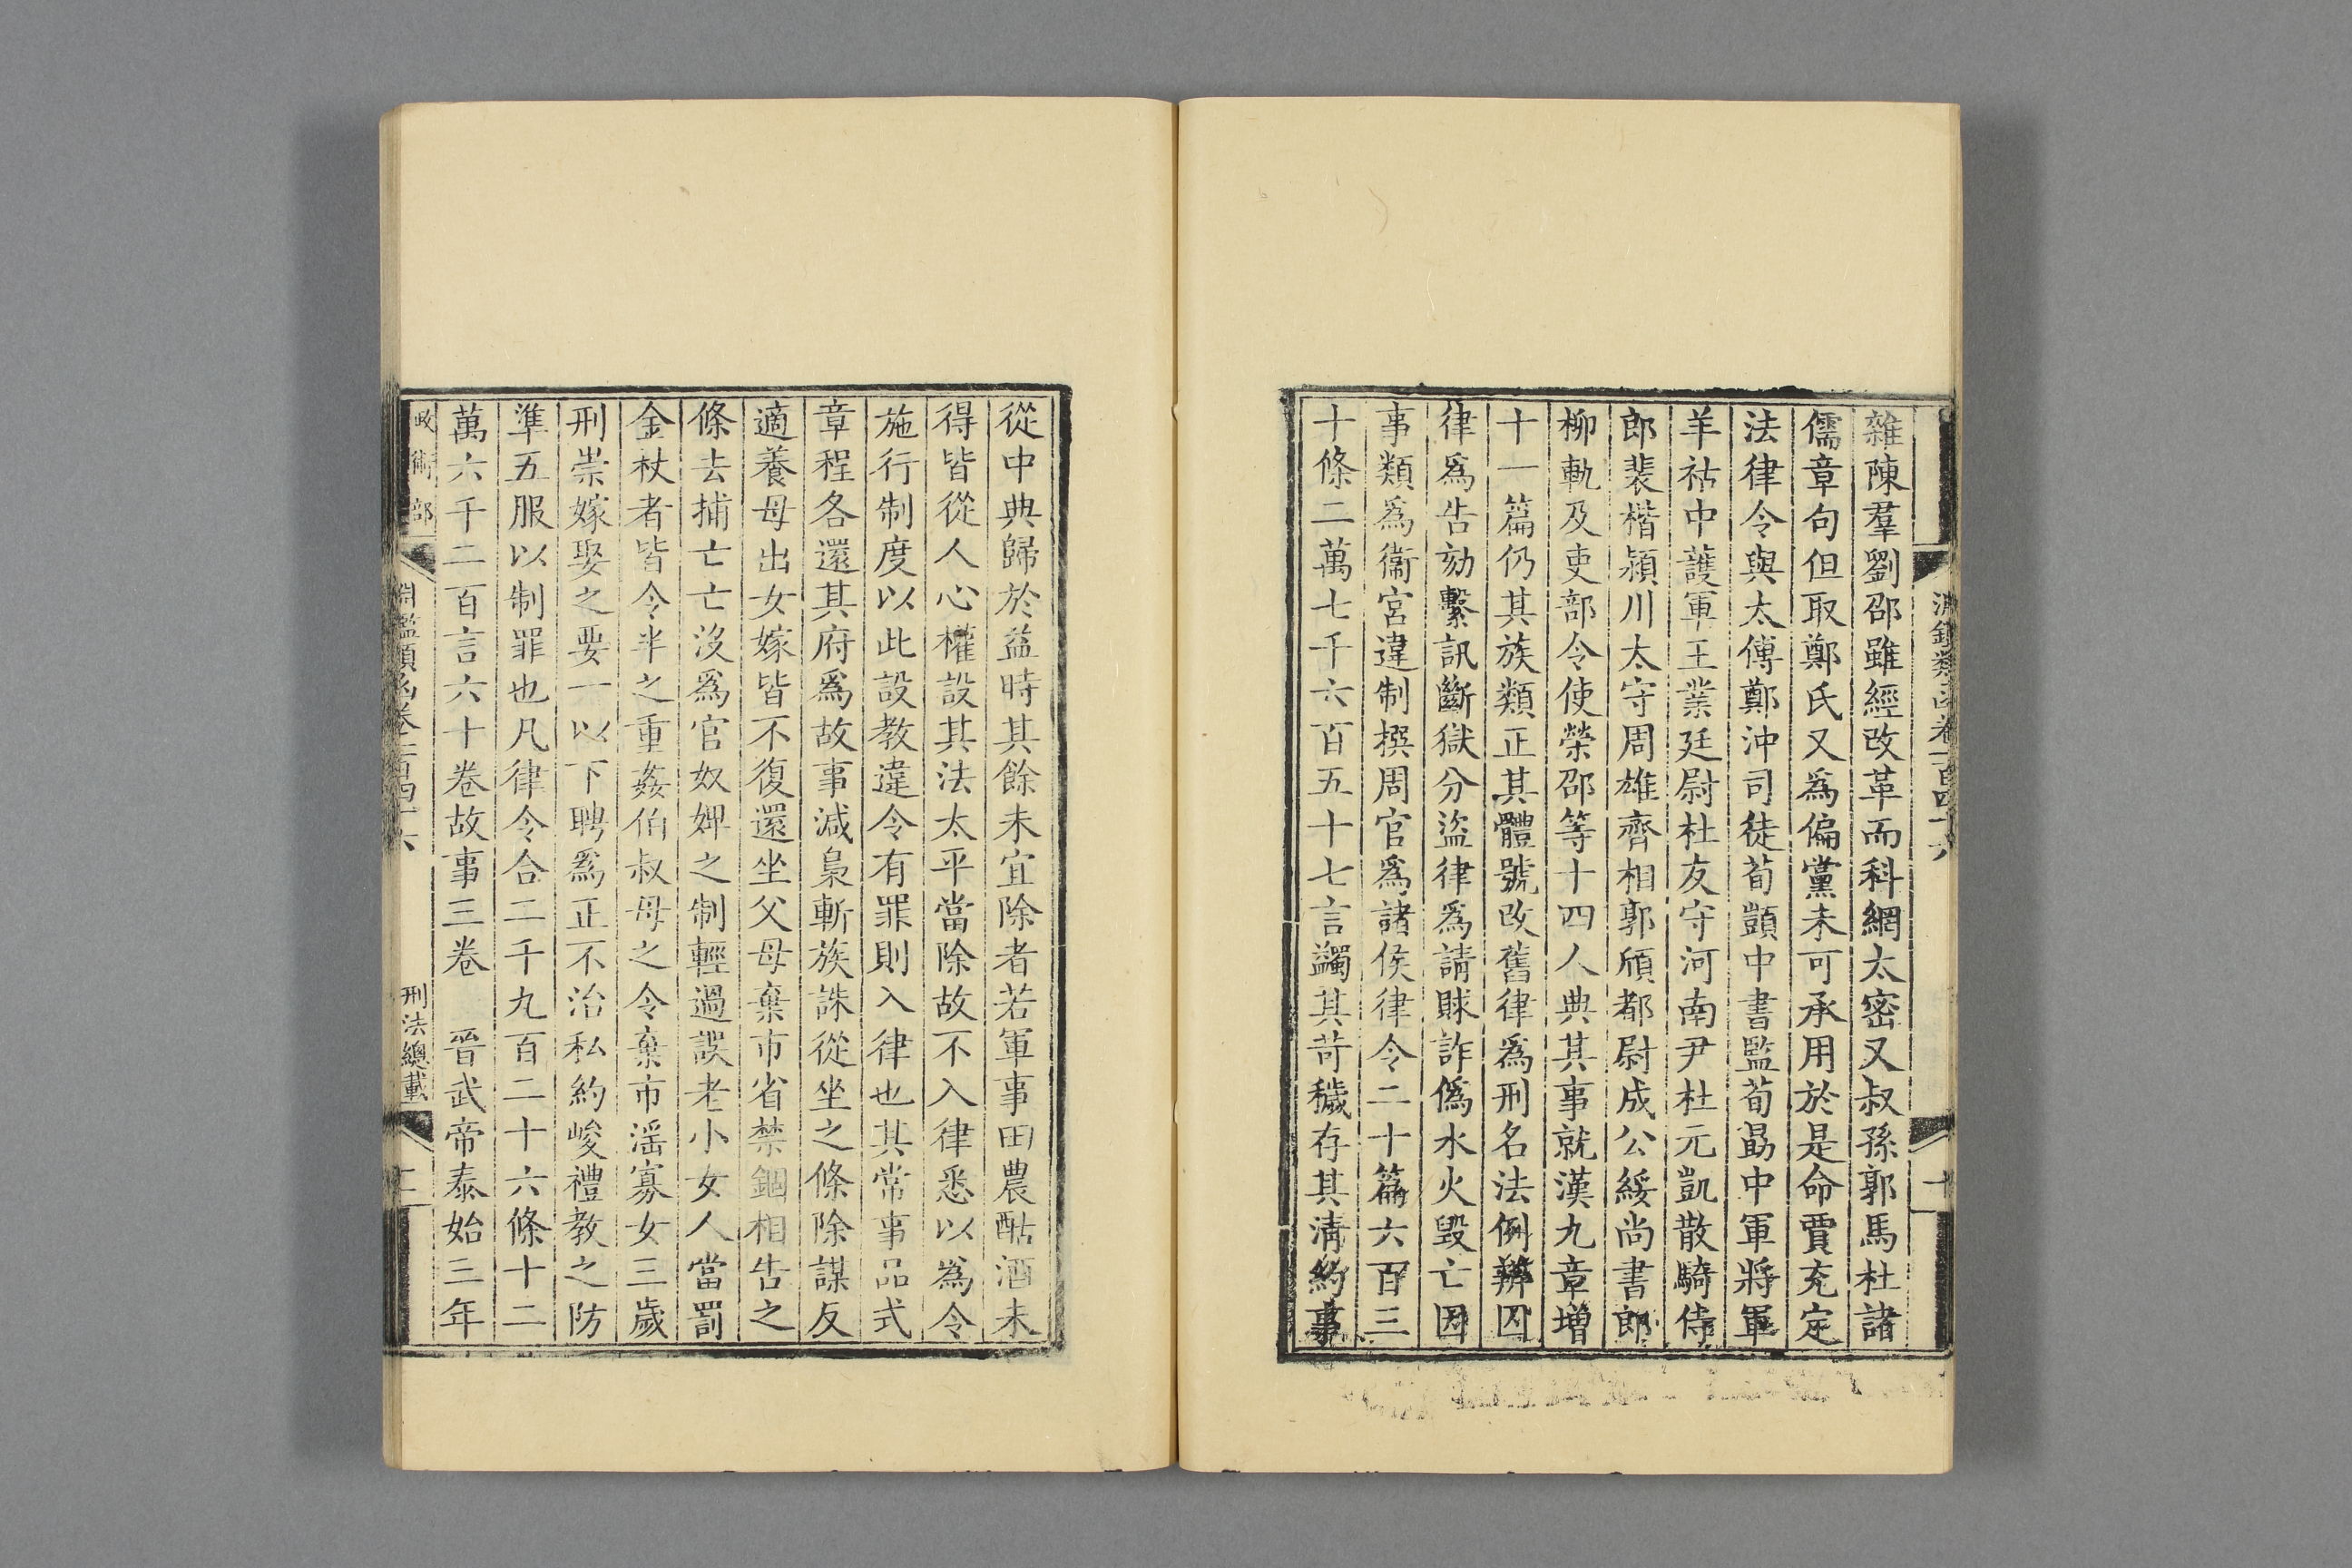 淵鑑類函卷一百四十六
十
雜陳羣劉邵雖經改革而科網太密又叔孫郭馬杜諸
儒章句但取鄭氏又爲偏黨未可承用於是命賈充定
法律令與太傅鄭沖司徒荀顗中書監荀勗中軍將軍
羊祜中護軍王業廷尉杜友守河南尹杜元凱散騎侍
郎裴楷潁川太守周雄齊相郭頎都尉成公綏尚書郎
柳軌及吏部令使榮邵等十四人典其事就漢九章增
十一篇仍其族類正其體號改舊律爲刑名法例辨囚
律爲告劾繫訊斷獄分盜律爲請賕詐僞水火毀亡因
事類爲衞宮違制撰周官爲諸侯律令二十篇六百三
十條二萬七千六百五十七言蠲其苛穢存其清約事
從中典歸於益時其餘未宜除者若軍事田農酤酒未
得皆從人心權設其法太平當除故不入律悉以爲令
施行制度以此設教違令有罪則入律也其常事品式
章程各還其府爲故事減梟斬族誅從坐之條除謀反
適養母出女嫁皆不復還坐父母棄市省禁錮相告之
條去捕亡亡沒爲官奴婢之制輕過誤老小女人當罰
金杖者皆令半之重姦伯叔母之令棄市滛寡女三歲
刑崇嫁娶之要一以下聘爲正不治私約峻禮教之防
準五服以制罪也凡律令合二千九百二十六條十二
萬六千二百言六十卷故事三卷　晉武帝泰始三年
政術部
淵鑑類函卷一百四十六
刑法總載